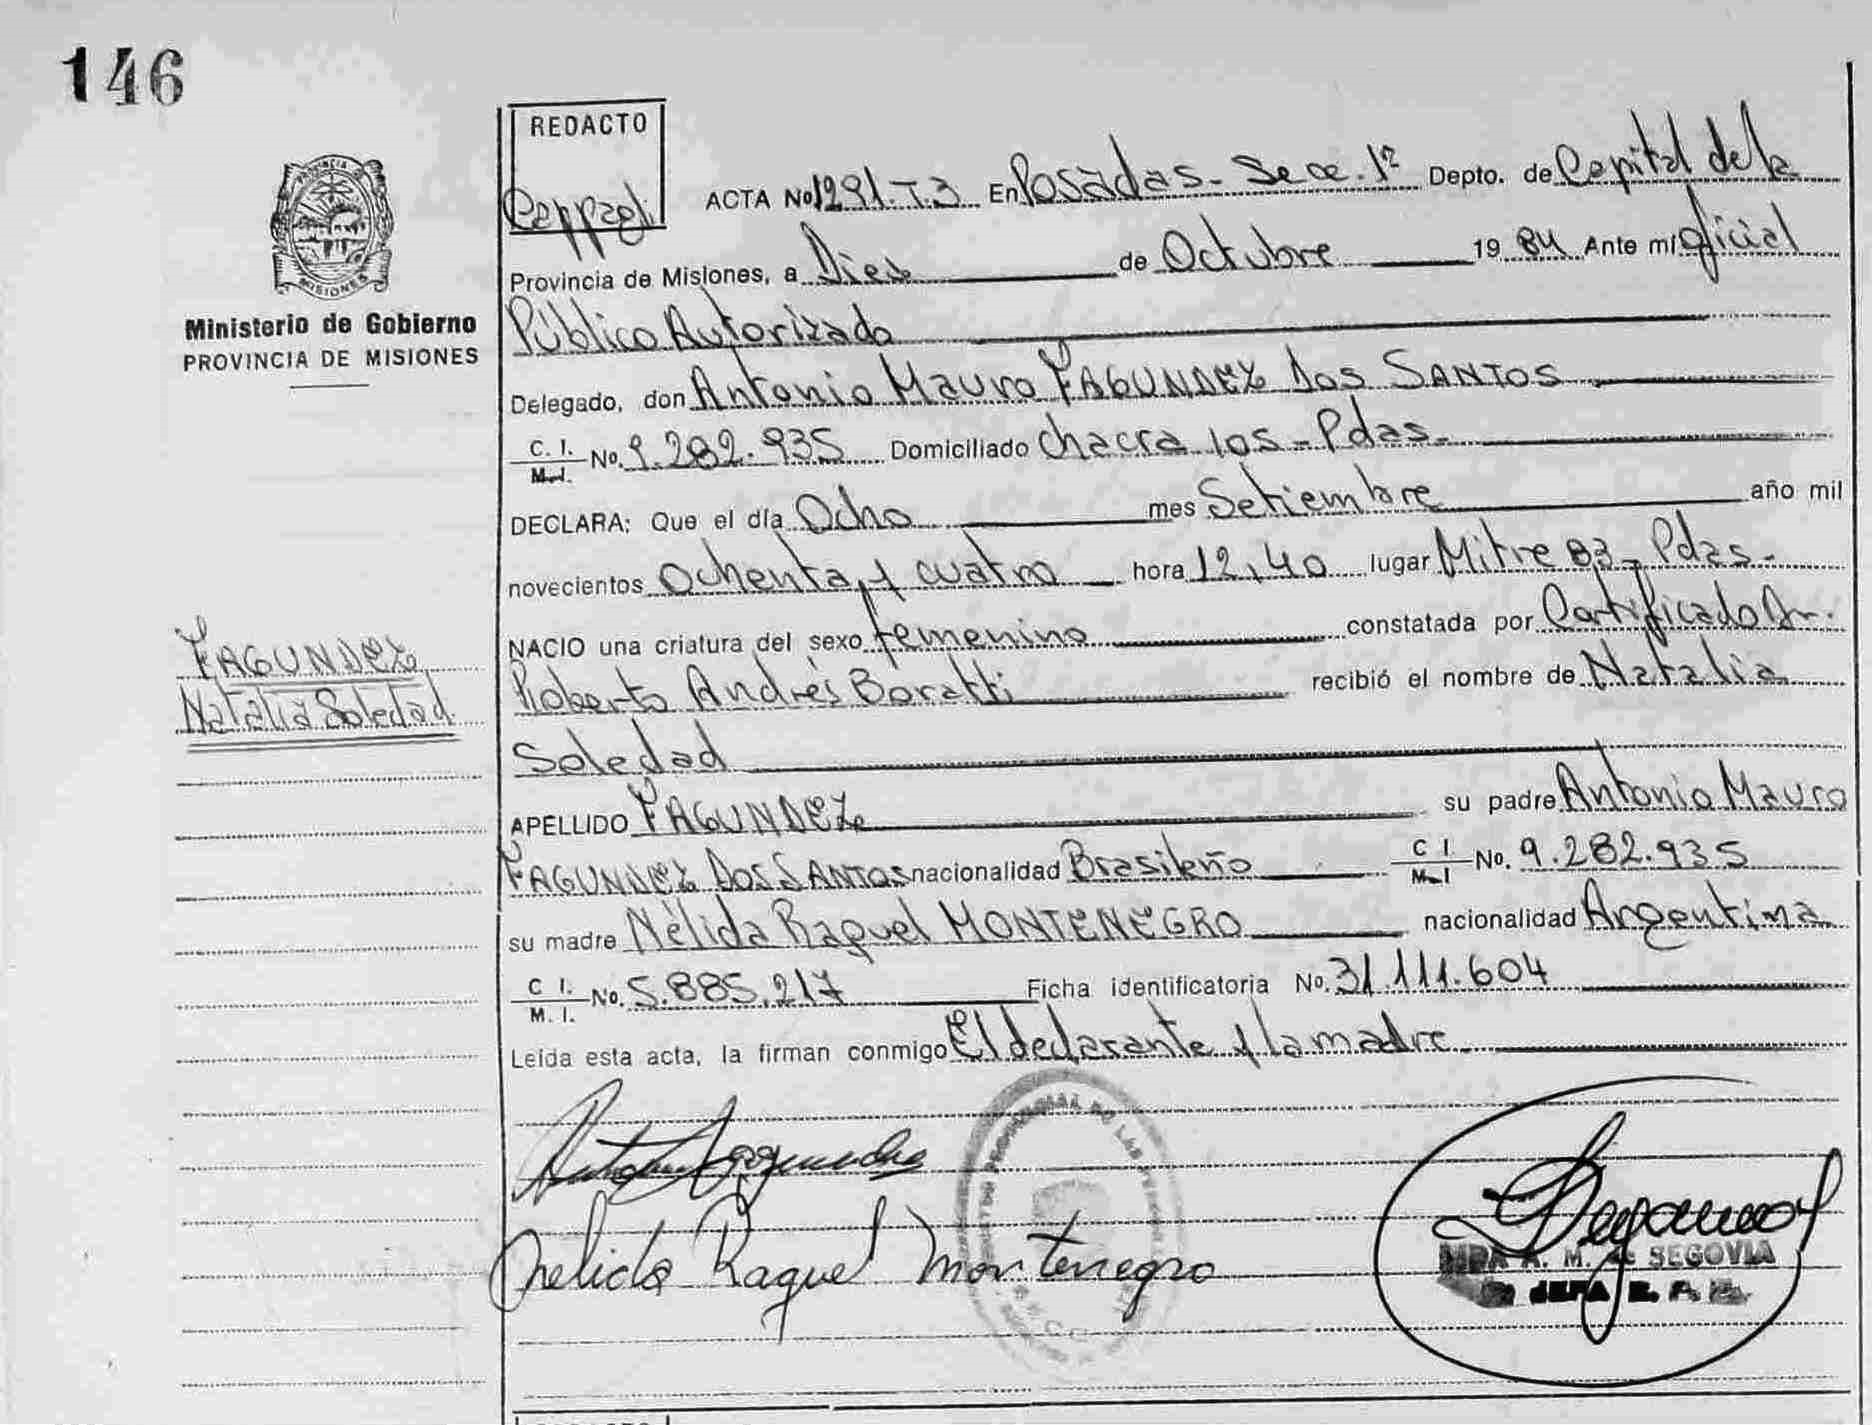 146
REDACTO
ACTA No 1291-T.3 En Posadas - Secc. 1ª Depto. de Capital de la
Provincia de Misiones, a Dies de Octubre 19 84 Ante mi oficial
PROVINCIA
MISIONES
Ministerio de Gobierno
PROVINCIA DE MISIONES
Público Autorizado
Delegado, don Antonio Mauro FAGUNDEZ Dos SANTOS
C. I. No. 9.282.935 Domiciliado Chacra 105 - Pdas -
M. I.
DECLARA: Que el día Ocho mes Setiembre año mil
novecientos Ochenta y cuatro hora 12,40 lugar Mitre 83 - Pdas -
NACIO una criatura del sexo femenino constatada por Certificado Dr.
FAGUNDEZ
Natalia Soledad
Roberto Andrés Boratti recibió el nombre de Natalia
Soledad
APELLIDO FAGUNDEZ su padre Antonio Mauro
FAGUNDEZ DOS SANTOS nacionalidad Brasileño C I No. 9.282.935
M. I
su madre Nélida Raquel MONTENEGRO nacionalidad Argentina
C I. No. 5.885.217 Ficha identificatoria No. 31.111.604
M. I.
Leida esta acta, la firman conmigo El declarante y la madre
Nelida Raquel Montenegro
A. M. de SEGOVIA
JEFA